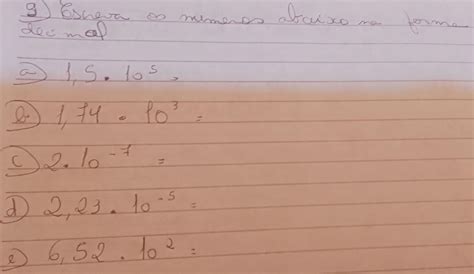 9) Escreva os numeros abaixo na forma
decimal
a) 1,5 . 10⁵ =
b) 1,74 . 10³ =
c) 2 . 10⁻⁷ =
d) 2,23 . 10⁻⁵ =
e) 6,52 . 10² =